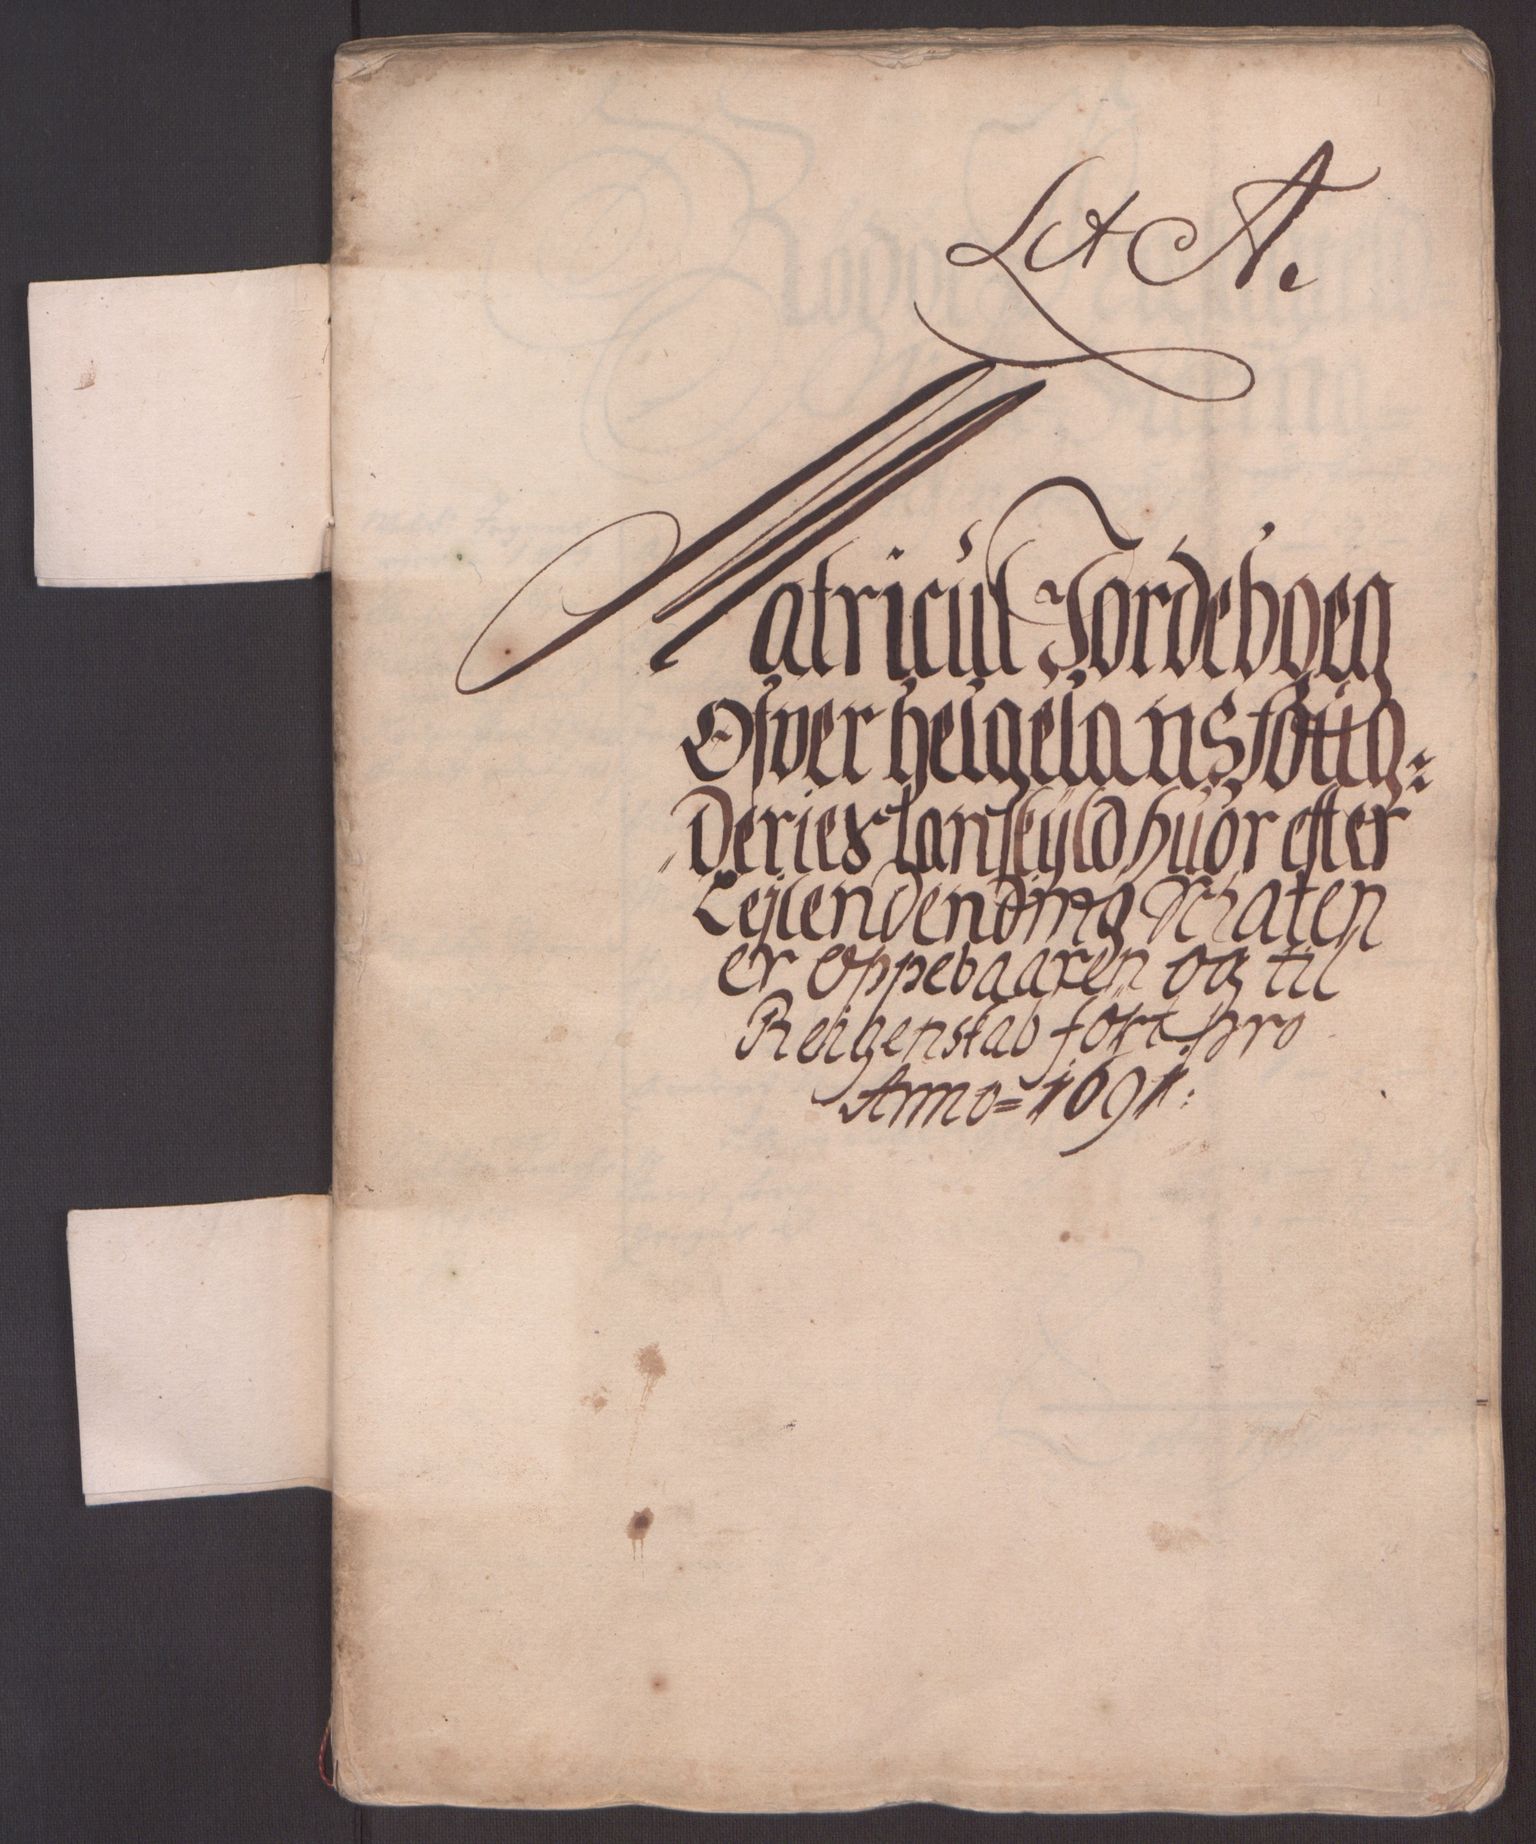 Lit A.
Matricul Jordeboeg
Ofver Helgelans foug=
Deries Lanskyld huor efter
Leilendending Schaten
er Oppebaaren og til
Reigenskab fört pro
Anno=1691: